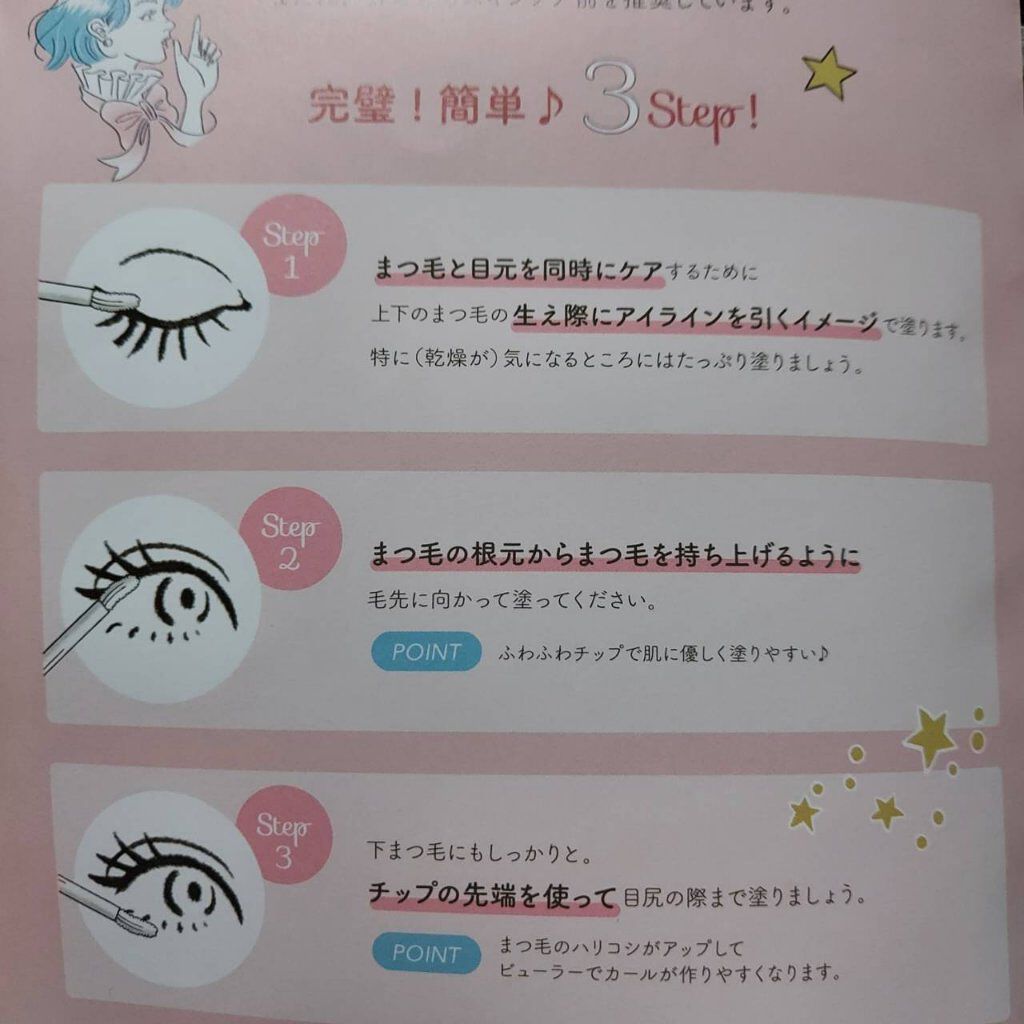 前を推奨しています。
完璧！簡単♪ 3 Step!
Step 1
まつ毛と目元を同時にケアするために
上下のまつ毛の生え際にアイラインを引くイメージで塗ります。
特に（乾燥が）気になるところにはたっぷり塗りましょう。
Step 2
まつ毛の根元からまつ毛を持ち上げるように
毛先に向かって塗ってください。
POINT ふわふわチップで肌に優しく塗りやすい♪
Step 3
下まつ毛にもしっかりと。
チップの先端を使って目尻の際まで塗りましょう。
POINT まつ毛のハリコシがアップして
ビューラーでカールが作りやすくなります。